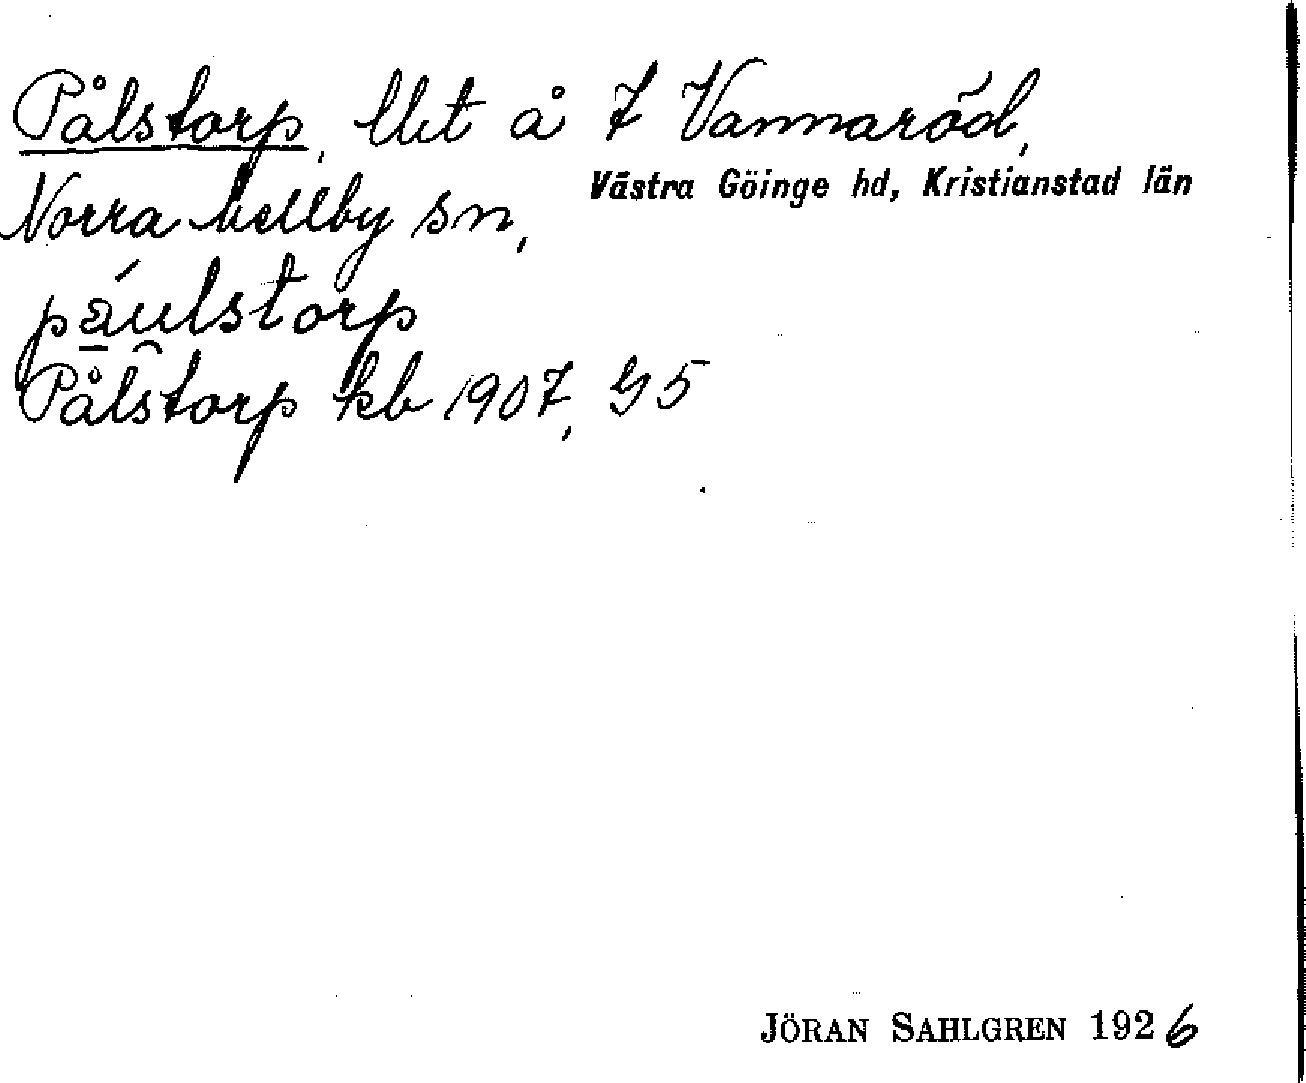 Pålstorp, llet å 7 Vannaröd,
Västra Göinge hd, Kristianstad län
Norra Mellby sn,
páulstorp
Pålstorp kb 1907, G5
JÖRAN SAHLGREN 1926